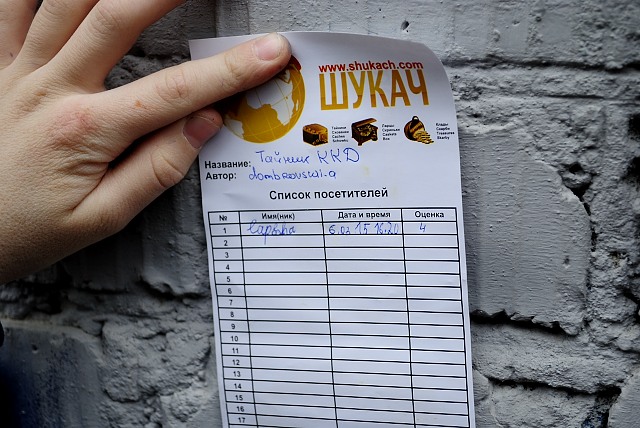 www.shukach.com
ШУКАЧ
Тайники
Сховинки
Caches
Schowky
Ларцы
Скриньки
Caskets
Box
Клады
Скарби
Treasures
Skarby
Название: Тайник ККD
Автор: dombrovskaya
Список посетителей
№ Имя(ник) Дата и время Оценка
1 6.02 15 16.20 4
2
3
4
5
6
7
8
9
10
11
12
13
14
15
16
17